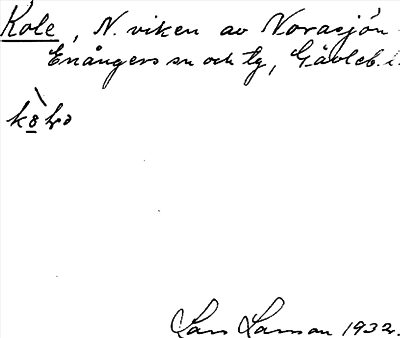 Kole, N. viken av Norasjön
Enångers sn och tg, Gävleb. l.
Lars Larsson 1932.